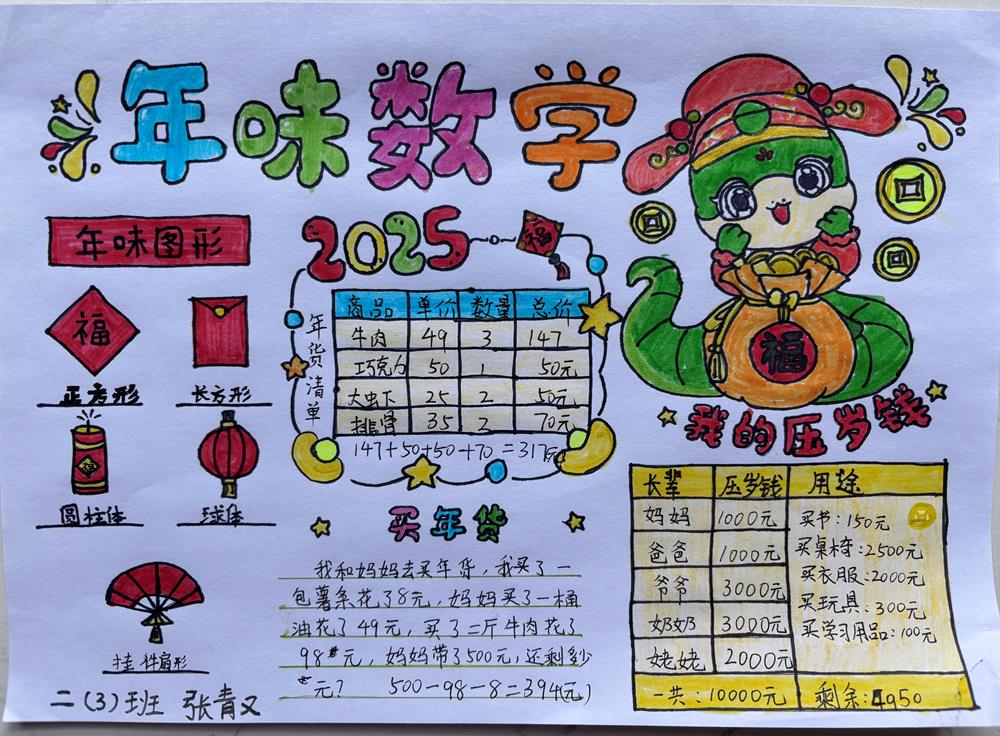 年味数学
年味图形
福
正方形
长方形
福
圆柱体
球体
挂件扇形
二(3)班 张青又
2025
福
年货清单
商品 单价 数量 总价
牛肉 49 3 147
巧克力 50 1 50元
大虫下 25 2 50元
排骨 35 2 70元
147+50+50+70=317元
买年货
我和妈妈去买年货,我买了一
包薯条花了8元,妈妈买了一桶
油花了49元,买了二斤牛肉花了
98元,妈妈带了500元,还剩多少
元? 500-98-8=394(元)
福
我的压岁钱
长辈 压岁钱 用途
妈妈 1000元
爸爸 1000元
爷爷 3000元
奶奶 3000元
姥姥 2000元
买书:150元
买桌椅:2500元
买衣服:2000元
买玩具:300元
买学习用品:100元
一共:10000元 剩余:4950